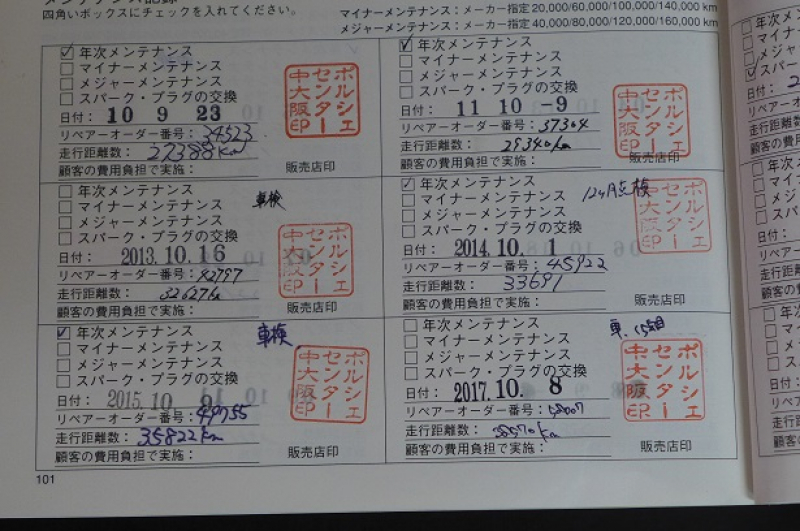 メンテナンス記録
四角いボックスにチェックを入れてください。
マイナーメンテナンス：メーカー指定20,000/60,000/100,000/140,000 km
メジャーメンテナンス：メーカー指定40,000/80,000/120,000/160,000 km
年次メンテナンス
マイナーメンテナンス
メジャーメンテナンス
スパーク・プラグの交換
日付： 10 9 23
リペアーオーダー番号：34523
走行距離数：27388km
顧客の費用負担で実施：
ポルシェセンター中大阪印
販売店印
年次メンテナンス
マイナーメンテナンス
メジャーメンテナンス
スパーク・プラグの交換
日付： 11 10 -9
リペアーオーダー番号：37304
走行距離数：29340km
顧客の費用負担で実施：
ポルシェセンター中大阪印
販売店印
年次メンテナンス 車検
マイナーメンテナンス
メジャーメンテナンス
スパーク・プラグの交換
日付： 2013.10.16
リペアーオーダー番号：42797
走行距離数：32627km
顧客の費用負担で実施：
ポルシェセンター中大阪印
販売店印
年次メンテナンス 12ヶ月点検
マイナーメンテナンス
メジャーメンテナンス
スパーク・プラグの交換
日付： 2014.10.1
リペアーオーダー番号：45922
走行距離数：33691
顧客の費用負担で実施：
ポルシェセンター中大阪印
販売店印
年次メンテナンス 車検
マイナーメンテナンス
メジャーメンテナンス
スパーク・プラグの交換
日付： 2015.10.
リペアーオーダー番号：49755
走行距離数：35822km
顧客の費用負担で実施：
ポルシェセンター中大阪印
販売店印
年次メンテナンス
マイナーメンテナンス
メジャーメンテナンス
スパーク・プラグの交換
日付： 2017.10. 8
リペアーオーダー番号：58007
走行距離数：38570km
顧客の費用負担で実施：
ポルシェセンター中大阪印
販売店印
101